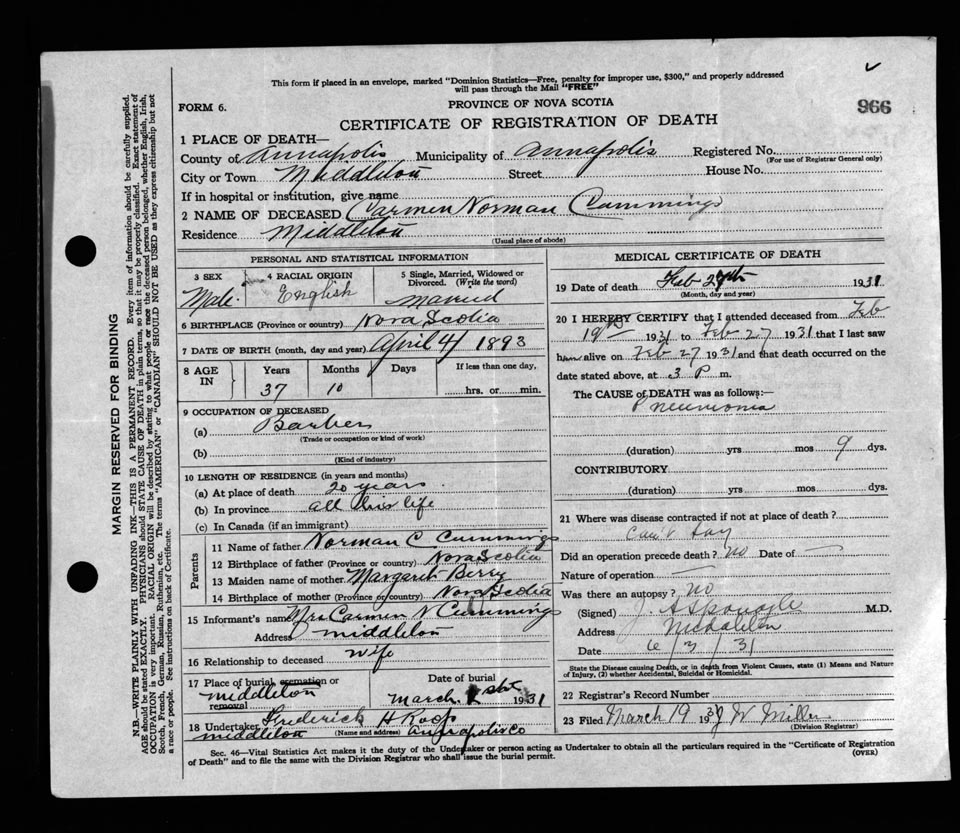 This form if placed in an envelope, marked "Dominion Statistics—Free, penalty for improper use, $300," and properly addressed
will pass through the Mail "FREE"
966
FORM 6.
PROVINCE OF NOVA SCOTIA
CERTIFICATE OF REGISTRATION OF DEATH
1 PLACE OF DEATH—
County of Annapolis Municipality of Annapolis Registered No.
(For use of Registrar General only)
City or Town Middleton Street House No.
If in hospital or institution, give name
2 NAME OF DECEASED Carmen Norman Cummings
Residence Middleton
(Usual place of abode)
PERSONAL AND STATISTICAL INFORMATION
3 SEX 4 RACIAL ORIGIN 5 Single, Married, Widowed or
Divorced. (Write the word)
Male. English Married
6 BIRTHPLACE (Province or country) Nova Scotia
7 DATE OF BIRTH (month, day and year) April 4 1893
8 AGE IN Years Months Days If less than one day,
37 10 hrs. or min.
9 OCCUPATION OF DECEASED
(a) Barber
(Trade or occupation or kind of work)
(b)
(Kind of industry)
10 LENGTH OF RESIDENCE (in years and months)
(a) At place of death 20 years.
(b) In province all his life
(c) In Canada (if an immigrant)
Parents
11 Name of father Norman C. Cummings
12 Birthplace of father (Province or country) Nova Scotia
13 Maiden name of mother Margaret Berry
14 Birthplace of mother (Province or country) Nova Scotia
15 Informant's name Mrs Carmen N Cummings
Address Middleton
16 Relationship to deceased wife
17 Place of burial, cremation or removal Date of burial
Middleton March 1st 1931
18 Undertaker Frederick H Roop
(Name and address)
Middleton Annapolis Co
MEDICAL CERTIFICATE OF DEATH
19 Date of death Feb 27th 1931
(Month, day and year)
20 I HEREBY CERTIFY that I attended deceased from Feb
19th 1931 to Feb 27 1931 that I last saw
him alive on Feb 27 1931 and that death occurred on the
date stated above, at 3 P m.
The CAUSE of DEATH was as follows:—
Pneumonia
(duration) yrs mos 9 dys.
CONTRIBUTORY
(duration) yrs mos dys.
21 Where was disease contracted if not at place of death?
Can't say
Did an operation precede death? No Date of —
Nature of operation —
Was there an autopsy? No
(Signed) J. A Sponagle M.D.
Address Middleton
Date 6/3/31
State the Disease causing Death, or in death from Violent Causes, state (1) Means and Nature
of Injury, (2) whether Accidental, Suicidal or Homicidal.
22 Registrar's Record Number
23 Filed March 19 1931 J W Miller
(Division Registrar)
Sec. 46—Vital Statistics Act makes it the duty of the Undertaker or person acting as Undertaker to obtain all the particulars required in the "Certificate of Registration
of Death" and to file the same with the Division Registrar who shall issue the burial permit.
(OVER)
MARGIN RESERVED FOR BINDING
N.B.—WRITE PLAINLY WITH UNFADING INK—THIS IS A PERMANENT RECORD. Every item of information should be carefully supplied.
AGE should be stated EXACTLY. PHYSICIANS should STATE CAUSE OF DEATH in plain terms, so that it may be properly classified. Exact statement of
OCCUPATION is very important. RACIAL ORIGIN will be described by stating to what people or race the deceased person belonged, whether English, Irish,
Scotch, French, German, Russian, Ruthenian, etc. The terms "AMERICAN" or "CANADIAN" SHOULD NOT BE USED as they express citizenship but not
a race or people. See instructions on back of Certificate.